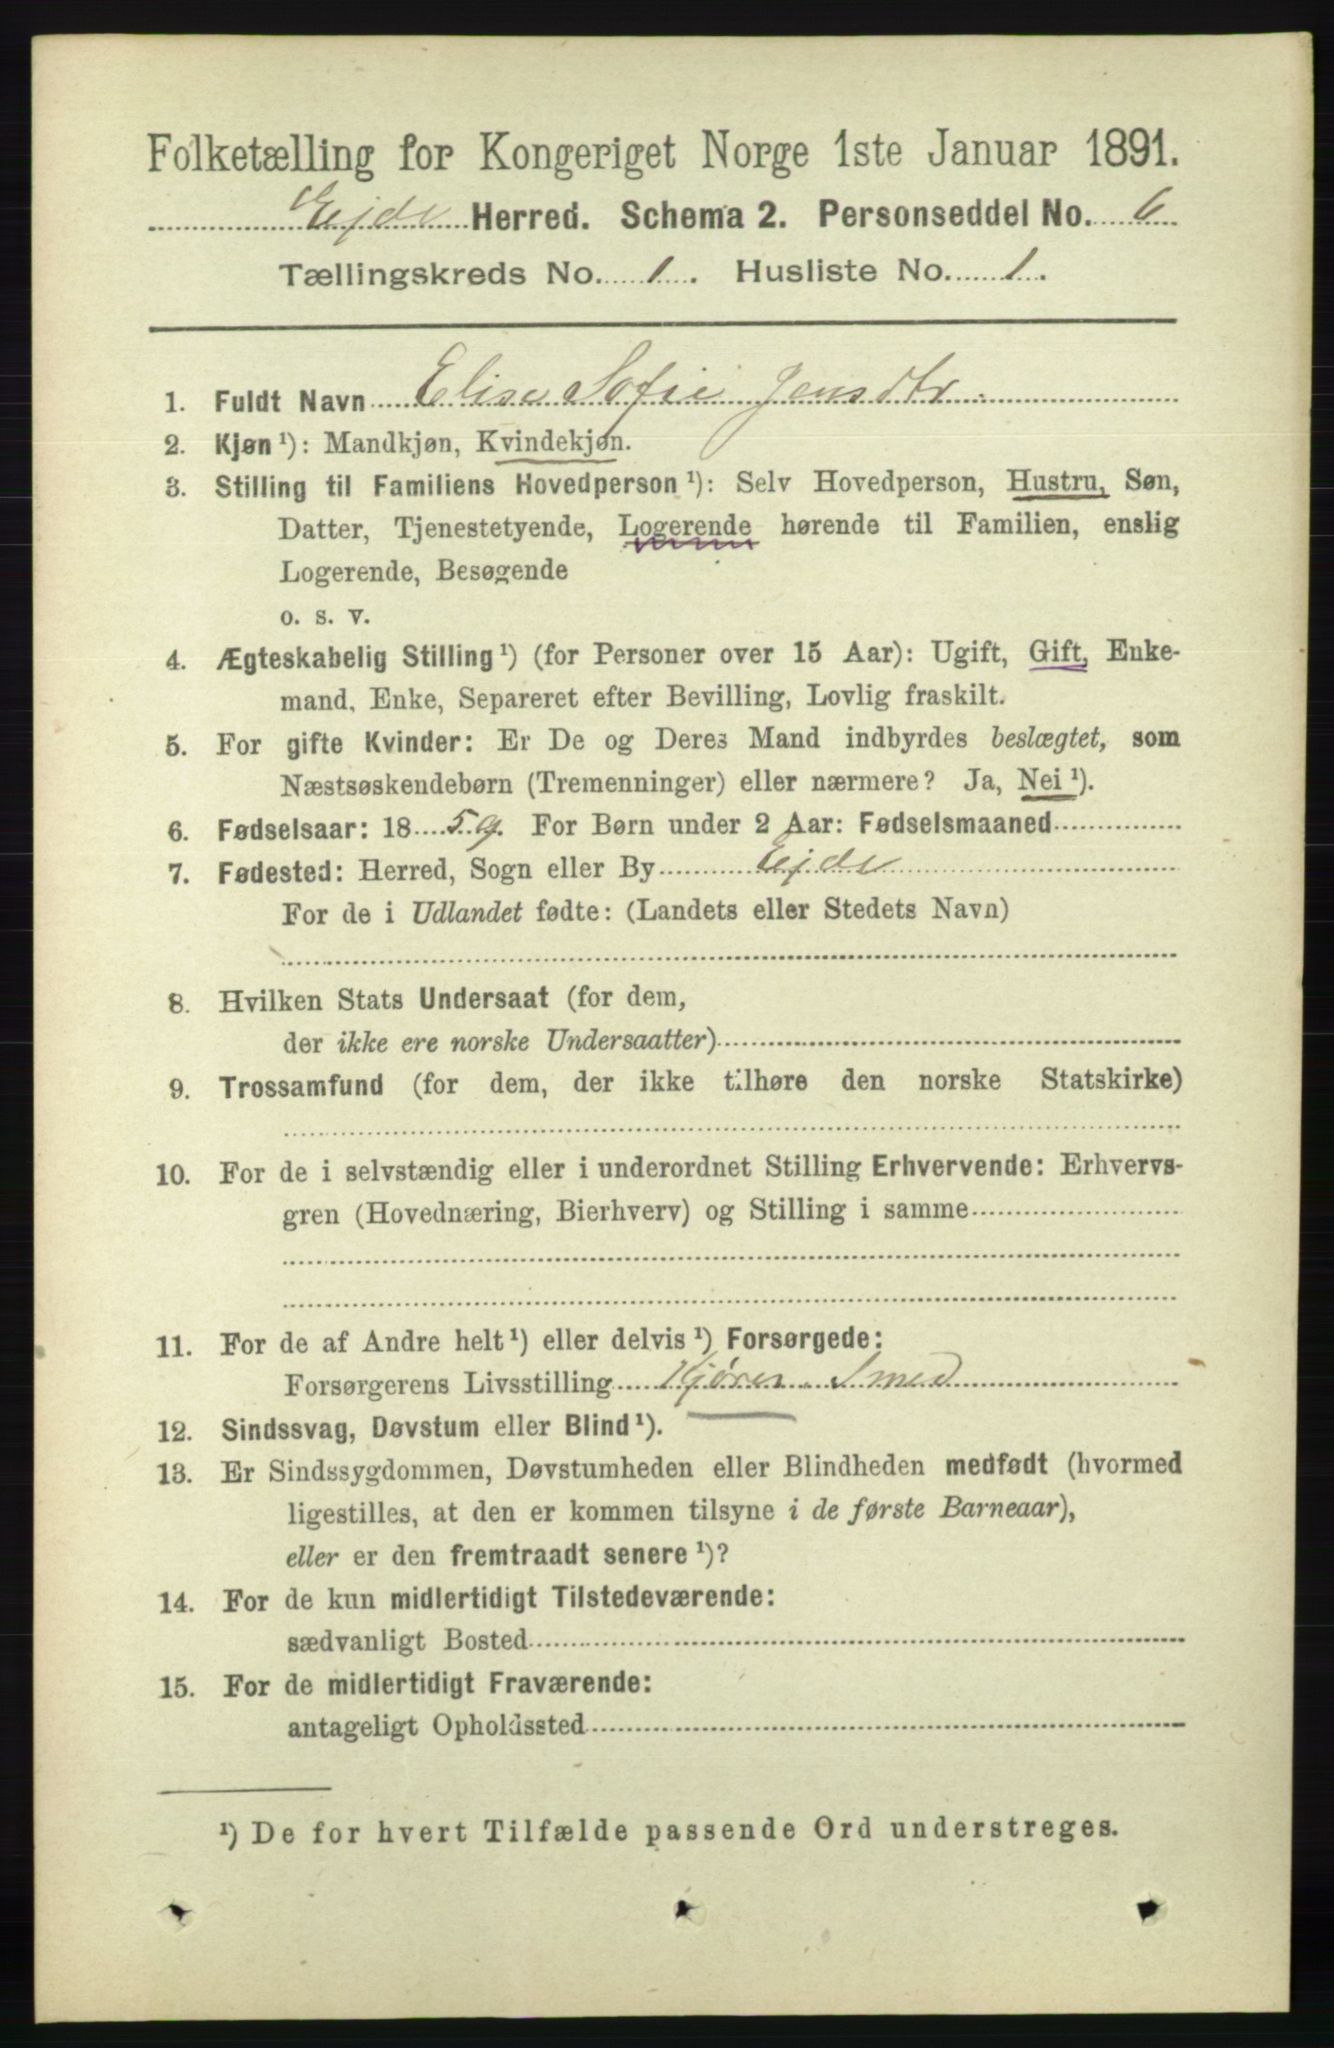 Folketælling for Kongeriget Norge 1ste Januar 1891.
Ejde Herred. Schema 2. Personseddel No. 6
Tællingskreds No. 1. Husliste No. 1.
1. Fuldt Navn Elise Sofie Jensdtr.
2. Kjøn ¹): Mandkjøn, Kvindekjøn.
3. Stilling til Familiens Hovedperson ¹): Selv Hovedperson, Hustru, Søn,
Datter, Tjenestetyende, Logerende hørende til Familien, enslig
Logerende, Besøgende
o. s. v.
4. Ægteskabelig Stilling ¹) (for Personer over 15 Aar): Ugift, Gift, Enke-
mand, Enke, Separeret efter Bevilling, Lovlig fraskilt.
5. For gifte Kvinder: Er De og Deres Mand indbyrdes beslægtet, som
Næstsøskendebørn (Tremenninger) eller nærmere? Ja, Nei ¹).
6. Fødselsaar: 18 59. For Børn under 2 Aar: Fødselsmaaned
7. Fødested: Herred, Sogn eller By Ejde
For de i Udlandet fødte: (Landets eller Stedets Navn)
8. Hvilken Stats Undersaat (for dem,
der ikke ere norske Undersaatter)
9. Trossamfund (for dem, der ikke tilhøre den norske Statskirke)
10. For de i selvstændig eller i underordnet Stilling Erhvervende: Erhvervs-
gren (Hovednæring, Bierhverv) og Stilling i samme
11. For de af Andre helt ¹) eller delvis ¹) Forsørgede:
Forsørgerens Livsstilling Smed
12. Sindssvag, Døvstum eller Blind ¹).
13. Er Sindssygdommen, Døvstumheden eller Blindheden medfødt (hvormed
ligestilles, at den er kommen tilsyne i de første Barneaar),
eller er den fremtraadt senere ¹)?
14. For de kun midlertidigt Tilstedeværende:
sædvanligt Bosted
15. For de midlertidigt Fraværende:
antageligt Opholdssted
¹) De for hvert Tilfælde passende Ord understreges.